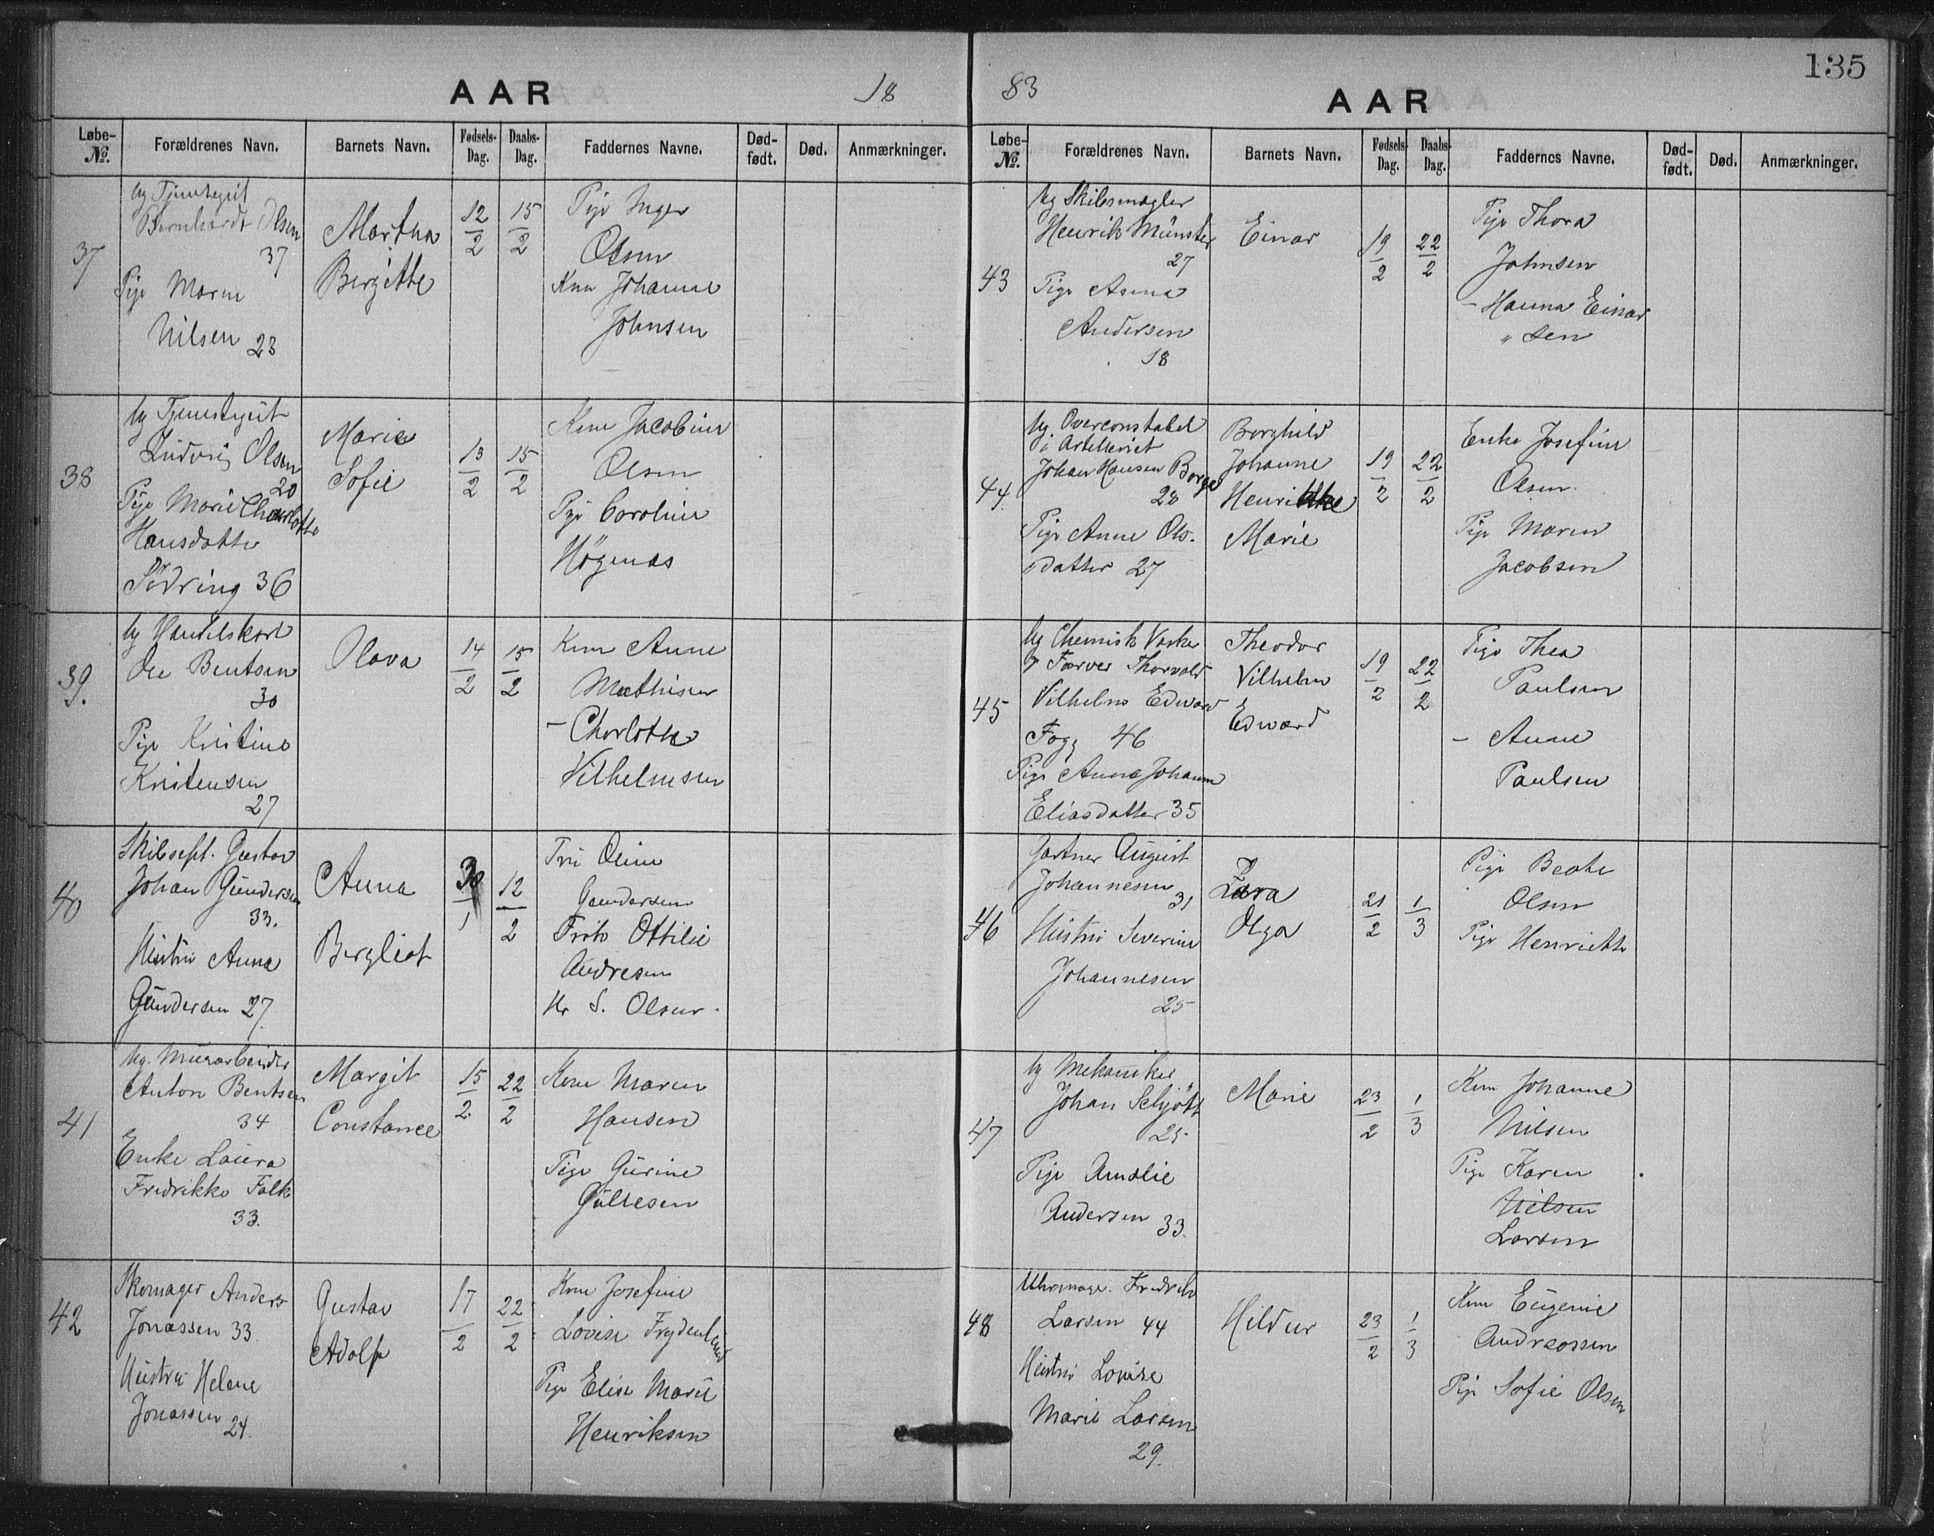 135
AAR 18
Løbe-№. Forældrenes Navn. Barnets Navn. Fødsels-Dag. Daabs-Dag. Faddernes Navne. Død-født. Død. Anmærkninger.
37
Bernhardt Olsen
37
Pige Maren
Nilsen 23
Martha
Bergitte
12/2
15/2
Pige Inger
Olsen
Kone Johanne
Johnsen
38
Ludvig Olsen
20
Pige Marie Charlotte
Hansdatter
Södring 36
Marie
Sofie
13/2
15/2
Kone Jacobine
Olsen
Pige Caroline
Högenæs
39.
Ug Handelskarl
Ole Bentsen
30
Pige Kristine
Kristensen
27
Olava
14/2
15/2
Kone Anne
Mathisen
- Charlotte
Vilhelmsen
40
Skibscpt. Gustav
Johan Gundersen
33.
Hustru Anna
Gundersen 27.
Anna
Bergliot
30/1
12/2
Fru Oline
Gundersen
Frök Ottilie
Andresen
Hr S. Olsen.
41
Ug. Murarbeider
Anton Bentsen
34
Enke Laura
Fredrikke Falk
33.
Margit
Constance
15/2
22/2
Kone Maren
Hansen
Pige Gurine
Gullesen
42
Skomager Anders
Jonassen 33.
Hustru Helene
Jonassen 24.
Gustav
Adolf
17/2
22/2
Kone Josefine
Lovise Frydenlund
Pige Elise Marie
Henriksen
83 AAR
Løbe-№. Forældrenes Navn. Barnets Navn. Fødsels-Dag. Daabs-Dag. Faddernes Navne. Død-født. Død. Anmærkninger.
43
Ug Skibsmægler
Henrik Münster
27
Pige Anna
Andersen
18
Einar
19/2
22/2
Pige Thora
Johnsen
- Hanna Einar
" sen
44.
Ug. Overconstabel
i Artilleriet
Johan Hansen Borge
28
Pige Anne Ols.
datter 27
Borghild
Johanne
Henrikke
Marie
19/2
22/2
Enke Josefine
Olsen.
Pige Maren
Jacobsen
45
Ug Chemisk Vasker
& Farver Thorvald
Vilhelm Edward
Fogg 46
Pige Anna Johanne
Eliasdatter 35
Theodor
Vilhelm
Edward
19/2
22/2
Pige Thea
Paulsen
- Anne
Paulsen
46
Gartner August
Johannesen
31
Hustru Severine
Johannesen
25
Zara
Olga
21/2
1/3
Pige Beate
Olsen
Pige Henriette
47
Ug Mekaniker
Johan Schjött
25
Pige Amalie
Andersen 33.
Marie
23/2
1/3
Kone Johanne
Nilsen
Pige Karen
Nielsen
Larsen
48
Uhrmager Fredrik
Larsen 44
Hustru Lovise
Marie Larsen
29.
Hildur
23/2
1/3
Kone Eugenie
Andreassen
Pige Sofie Olsen